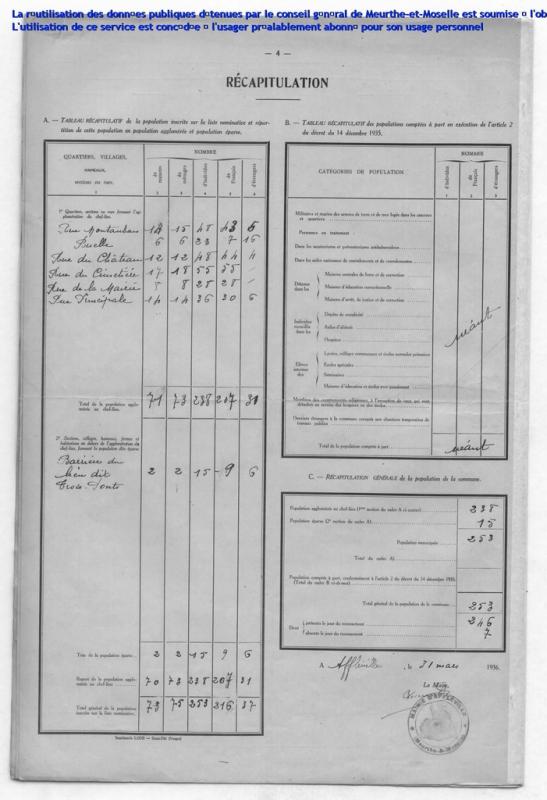 La r¤utilisation des donn¤es publiques d¤tenues par le conseil g¤n¤ral de Meurthe-et-Moselle est soumise ¤ l'ob
L'utilisation de ce service est conc¤d¤e ¤ l'usager pr¤alablement abonn¤ pour son usage personnel
— 4 —
RÉCAPITULATION
A. — TABLEAU RÉCAPITULATIF de la population inscrite sur la liste nominative et répar-
tition de cette population en population agglomérée et population éparse.
QUARTIERS, VILLAGES,
HAMEAUX,
SECTIONS OU RUES.
NOMBRE
de maisons
de ménages
d'individus
de Français
d'étrangers
1 2 3 4 5 6
1° Quartiers, sections ou rues formant l'ag-
glomération du chef-lieu.
Rue Montauban 14 15 48 43 5
Ruelle 6 6 23 7 16
Rue du Château 12 12 48 44 4
Rue du Cimetière 17 18 55 55 -
Rue de la Mairie 8 28 28 -
Rue Principale 14 14 36 30 6
Total de la population agglo-
mérée au chef-lieu. 71 73 238 207 31
2° Sections, villages, hameaux, fermes et
habitations en dehors de l'agglomération du
chef-lieu, formant la population dite éparse.
Barrière du
lieu dit
Trois-Ponts 2 2 15 9 6
Total de la population éparse. 2 2 15 9 6
Report de la population agglo-
mérée au chef-lieu 70 73 238 207 31
Total général de la population
inscrite sur la liste nominative. 73 75 253 216 37
B. — TABLEAU RÉCAPITULATIF des populations comptées à part en exécution de l'article 2
du décret du 14 décembre 1935.
CATÉGORIES DE POPULATION
NOMBRE
d'individus
de Français
d'étrangers
Militaires et marins des armées de terre et de mer logés dans les casernes
et quartiers
Personnes en traitement :
Dans les sanatoriums et préventoriums antituberculeux
Dans les asiles nationaux de convalescents et de convalescentes
Détenus
dans les
Maisons centrales de force et de correction
Maisons d'éducation correctionnelle
Maisons d'arrêt, de justice et de correction
Individus
recueillis
dans les
Dépôts de mendicité
Asiles d'aliénés
Hospices
Élèves
internes
des
Lycées, collèges communaux et écoles normales primaires
Écoles spéciales
Séminaires
Maisons d'éducation et écoles avec pensionnat
Membres des communautés religieuses, à l'exception de ceux qui sont
détachés au service des hospices ou des écoles
Ouvriers étrangers à la commune occupés aux chantiers temporaires de
travaux publics
néant
Total de la population comptée à part néant
C. — RÉCAPITULATION GÉNÉRALE de la population de la commune.
Population agglomérée au chef-lieu (1re section du cadre A ci-contre) 238
Population éparse (2e section du cadre A) 15
Population municipale 253
Total du cadre A
Population comptée à part, conformément à l'article 2 du décret du 14 décembre 1935.
(Total du cadre B ci-dessus)
Total général de la population de la commune 253
Dont
présents le jour du recensement 246
absents le jour du recensement 7
A Affléville, le 31 mars 1936.
Le Maire,
MAIRIE D'AFFLÉVILLE
Meurthe-&-Moselle